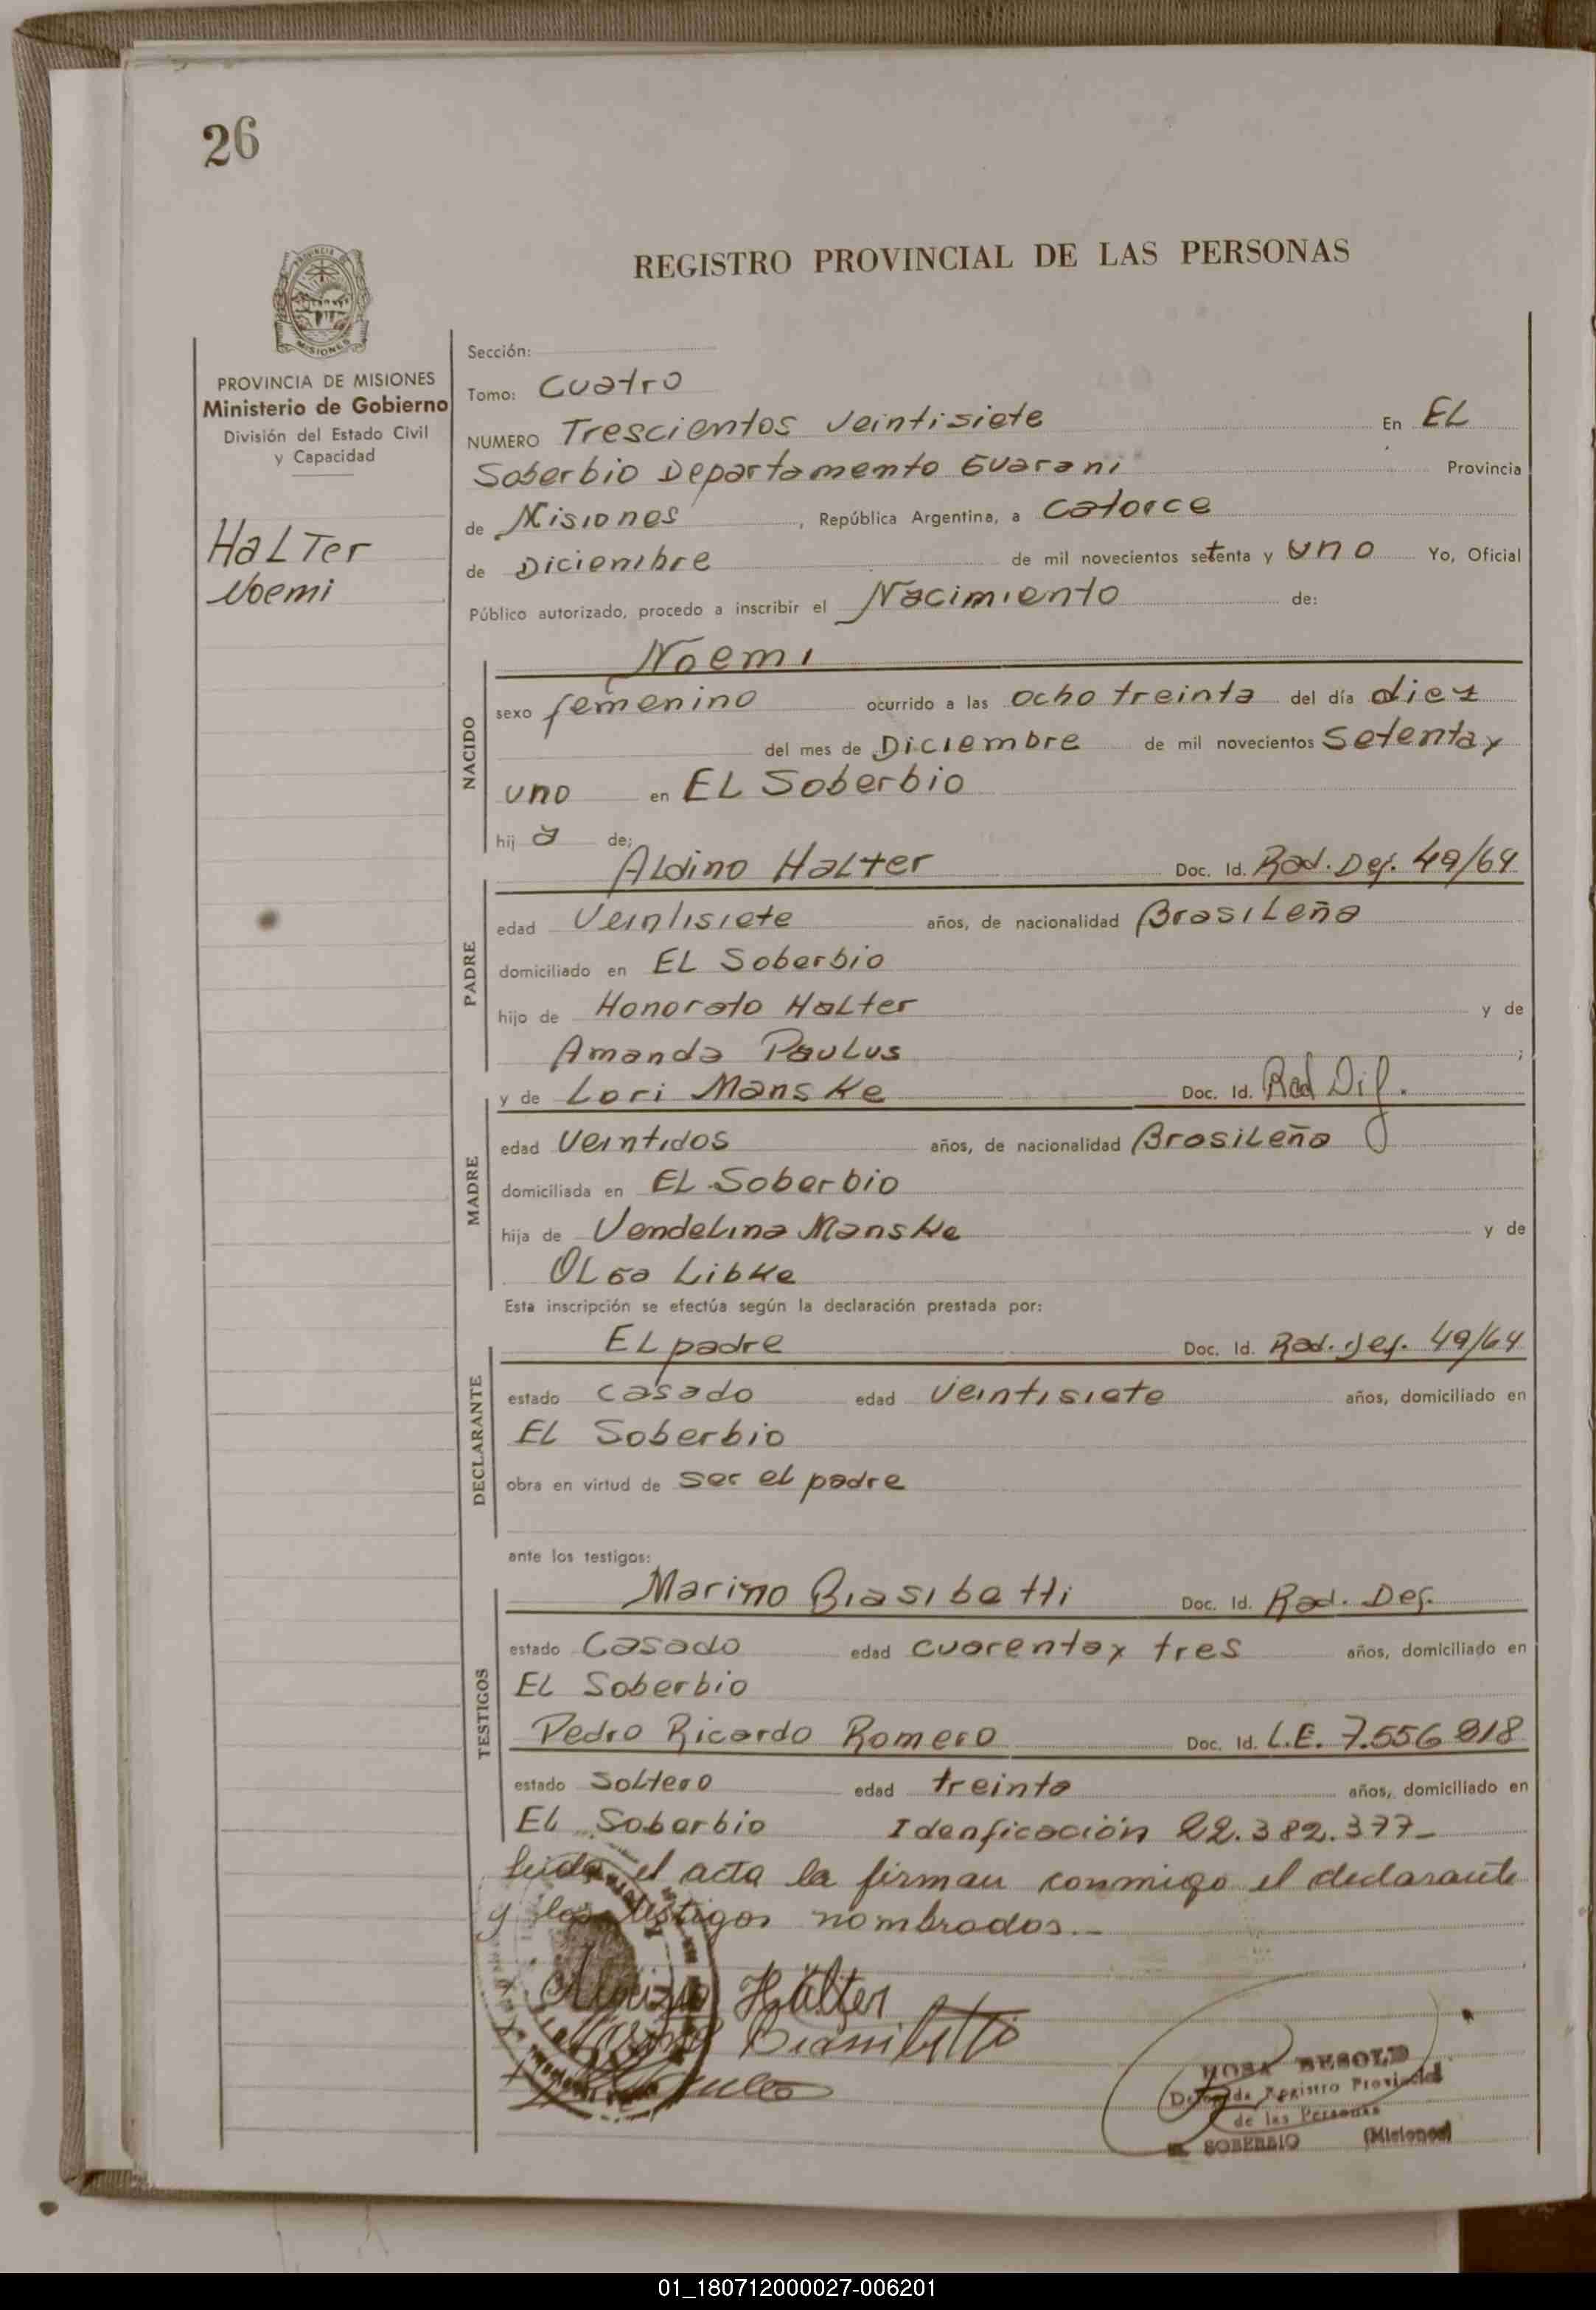 26
REGISTRO PROVINCIAL DE LAS PERSONAS
PROVINCIA DE MISIONES
Ministerio de Gobierno
División del Estado Civil
y Capacidad
HaLTer
Noemi
Sección:
Tomo: Cuatro
NUMERO Trescientos veintisiete En EL
Soberbio Departamento Guarani Provincia
de Misiones, República Argentina, a catorce
de Diciembre de mil novecientos setenta y uno Yo, Oficial
Público autorizado, procedo a inscribir el Nacimiento de:
NACIDO
Noemi
sexo femenino ocurrido a las ocho treinta del día diez
del mes de Diciembre de mil novecientos setenta y
uno en EL Soberbio
hij a de;
PADRE
ALdino HaLter Doc. Id. Rad. Def. 49/64
edad Veintisiete años, de nacionalidad BrasiLeña
domiciliado en EL Soberbio
hijo de Honorato HaLter y de
Amanda PauLus ;
MADRE
y de Lori Manske Doc. Id. Rad Dif.
edad veintidos años, de nacionalidad BrasiLeña
domiciliada en EL Soberbio
hija de VendeLina Manske y de
OLga Libke
Esta inscripción se efectúa según la declaración prestada por:
DECLARANTE
EL padre Doc. Id. Rad. Def. 49/64
estado casado edad veintisiete años, domiciliado en
EL Soberbio
obra en virtud de ser el padre
ante los testigos:
TESTIGOS
Marino Biasibetti Doc. Id. Rad. Def.
estado Casado edad cuarenta y tres años, domiciliado en
EL Soberbio
Pedro Ricardo Romero Doc. Id. L.E. 7.556 918
estado soLtero edad treinta años, domiciliado en
EL Soberbio Idenficación 22.382.377-
leida el acta la firman conmigo el declarante
y los testigos nombrados.-
Halter
ROSA BESOLD
Delegada Registro Provincial
de las Personas
EL SOBERBIO (Misiones)
01_180712000027-006201